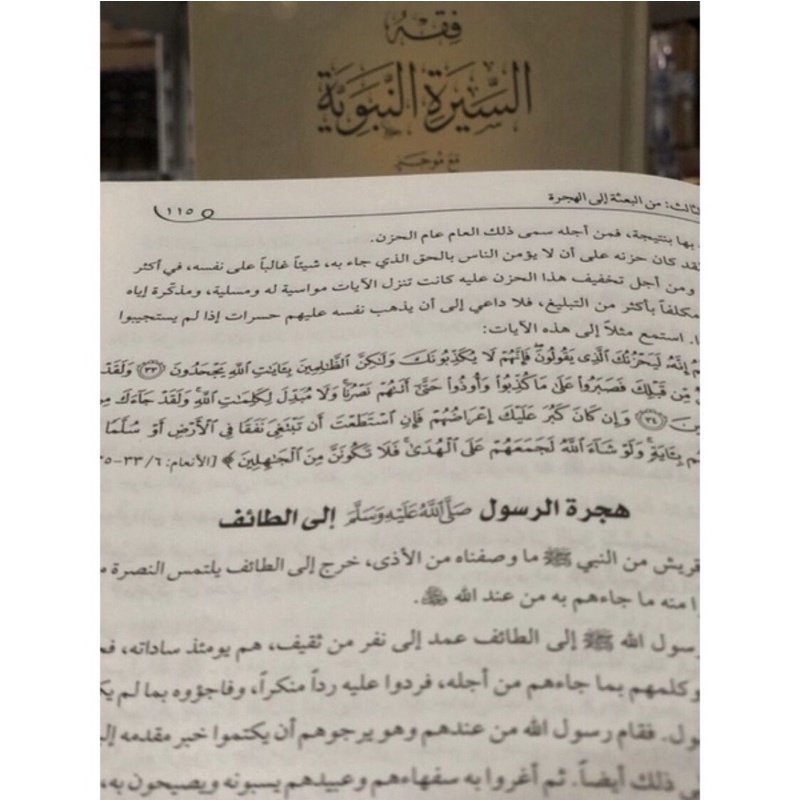 فقه
السيرة النبوية
مع موجز
ثالث: من البعثة إلى الهجرة ١١٥
بها بنتيجة، فمن أجله سمى ذلك العام عام الحزن.
قد كان حزنه على أن لا يؤمن الناس بالحق الذي جاء به، شيئاً غالباً على نفسه، في أكثر
ومن أجل تخفيف هذا الحزن عليه كانت تنزل الآيات مواسية له ومسلية، ومذكّرة إياه
مكلفاً بأكثر من التبليغ، فلا داعي إلى أن يذهب نفسه عليهم حسرات إذا لم يستجيبوا
ا. استمع مثلاً إلى هذه الآيات:
إِنَّهُ لَيَحْزُنُكَ ٱلَّذِى يَقُولُونَ فَإِنَّهُمْ لَا يُكَذِّبُونَكَ وَلَٰكِنَّ ٱلظَّٰلِمِينَ بِـَٔايَٰتِ ٱللَّهِ يَجْحَدُونَ ﴿٣٣﴾ وَلَقَدْ
مِّن قَبْلِكَ فَصَبَرُوا۟ عَلَىٰ مَا كُذِّبُوا۟ وَأُوذُوا۟ حَتَّىٰٓ أَتَىٰهُمْ نَصْرُنَا وَلَا مُبَدِّلَ لِكَلِمَٰتِ ٱللَّهِ وَلَقَدْ جَآءَكَ مِن
﴿٣٤﴾ وَإِن كَانَ كَبُرَ عَلَيْكَ إِعْرَاضُهُمْ فَإِنِ ٱسْتَطَعْتَ أَن تَبْتَغِىَ نَفَقًا فِى ٱلْأَرْضِ أَوْ سُلَّمًا
بِـَٔايَةٍ وَلَوْ شَآءَ ٱللَّهُ لَجَمَعَهُمْ عَلَى ٱلْهُدَىٰ فَلَا تَكُونَنَّ مِنَ ٱلْجَٰهِلِينَ ﴾ [الأنعام: ٦/٣٣-٣٥
هجرة الرسول صَلَّى ٱللَّهُ عَلَيْهِ وَسَلَّمَ إلى الطائف
قريش من النبي ﷺ ما وصفناه من الأذى، خرج إلى الطائف يلتمس النصرة م
ا منه ما جاءهم به من عند الله ﷻ.
رسول الله ﷺ إلى الطائف عمد إلى نفر من ثقيف، هم يومئذ ساداته، فج
وكلمهم بما جاءهم من أجله، فردوا عليه رداً منكراً، وفاجؤوه بما لم يك
ول. فقام رسول الله من عندهم وهو يرجوهم أن يكتموا خبر مقدمه إلي
ى ذلك أيضاً. ثم أغروا به سفهاءهم وعبيدهم يسبونه ويصيحون به،